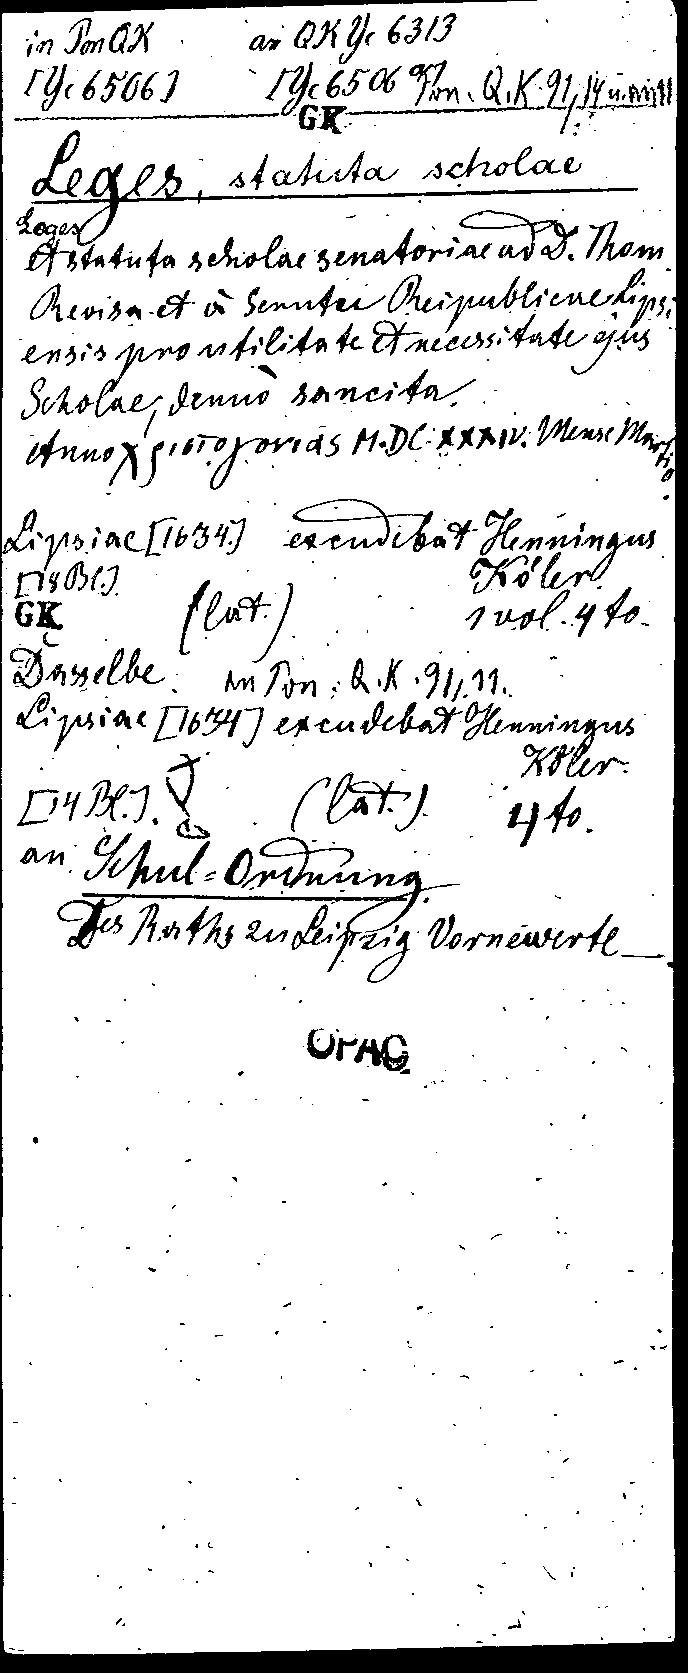 in Pon QK an QK Yc 6313
[Yc 6506] [Yc 6506 a] Pon. Q. K. 91, 14 u. an 11
GK
Leges, statuta scholae
Leges
et statuta scholae senatoriae ad D. Thom
Revisa et à Senatu Reipublicae Lipsi
ensis pro utilitate et necessitate ejus
Scholae, denuò sancita.
Anno χριστογονίας M.DC.XXXIV. Mense Martio.
Lipsiae [1634.] excudebat Henningus
[18 Bl.] Köler.
GK (lat.) 1 vol. 4to.
Dasselbe. an Pon. Q. K. 91, 11.
Lipsiae [1634] excudebat Henningus
Köler.
[14 Bl.]. (lat.). 4to.
an Schul=Ordnung
Des Raths zu Leipzig Vorneuerte
OPAC